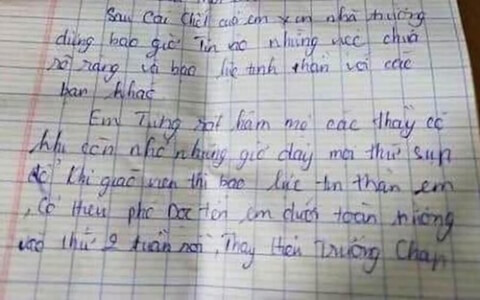 Sau cái chết của em xin nhà trường
đừng bao giờ tin vào những việc chưa
rõ ràng và bạo lực tinh thần với các
bạn khác
Em Từng rất hâm mộ các thầy cô
khi còn nhỏ nhưng giờ đây mọi thứ sụp
đổ khi giáo viên thì bạo lực tin thần em
, Cô Hiền phê Đọc tên em dưới toàn trường
vào thứ 2 tuần rồi, Thầy Hiền Trường